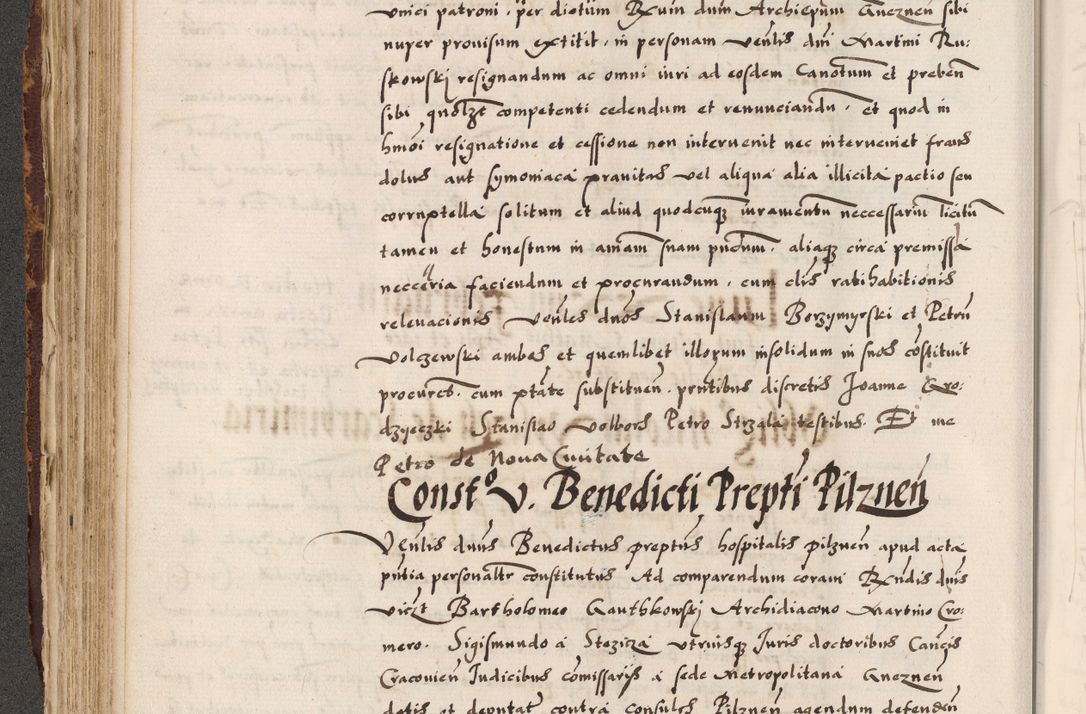 unici patroni, per dictum Rxum dnm Archiepum Gneznen sibi
nuper provisum extitit, in personam venlis dni Martini Ru:
skowskj resignandum ac omni iuri ad eosdem Canotum et preben
sibi quolzt competenti cedendum et renunciandu, et quod in
hmoi resignatione et cessione non intervenit nec interveniet fraus
dolus aut symoniaca pravitas vel aliqua alia illicita pactio seu
corruptella solitum et aliud quodcuq iuramentu neccessariu licitu
tamen et honestum in aniam suam pndum, aliaq circa premissa
necceria faciendum et procurandum, cum clis ratihabitionis
relevacionis venles dnos Stanislaum Borzymyrski et Petru
Volczewski ambas et quemlibet illorum insolidum in suos costituit
procurcs, cum ptate substituen, pntibus discretis Joanne Gro:
dzyeczki Stanislao Volbors Petro Strzala testibus. Et me
Petro de Nova Civitate
Const.o V. Benedicti Prepti Pilznen
Venlis dnus Benedictus preptus hospitalis pilznen apud acta
pntia personaltr constitutus Ad comparendum coram Rxndis dnis
viczt Bartholomeo Ganthkowskj Archidiacono Martino Cro:
mero, Sigismundo a Stezicza utriusq Juris doctoribus Cancis
Cracovien Judicibus comissarijs a sede Metropolitana Gneznen
datis et deputat contra consules Pilznen agendum defenden